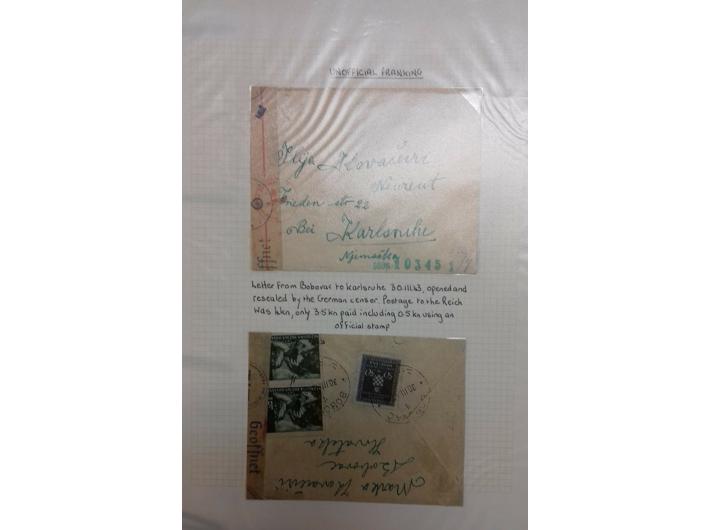 UNOFFICIAL FRANKING
Ilija Kovačević
Neureut
Frieden str 22
Bei Karlsruhe
Njemačka
10345
öffnet
Letter from Bobovac to Karlsruhe 30.III.43, opened and
resealed by the German censor. Postage to the Reich
was 4kn, only 3.5kn paid including 0.5kn using an
official stamp
Geöffnet
30.III
Marko Kovačević
Bobovac
Hrvatska